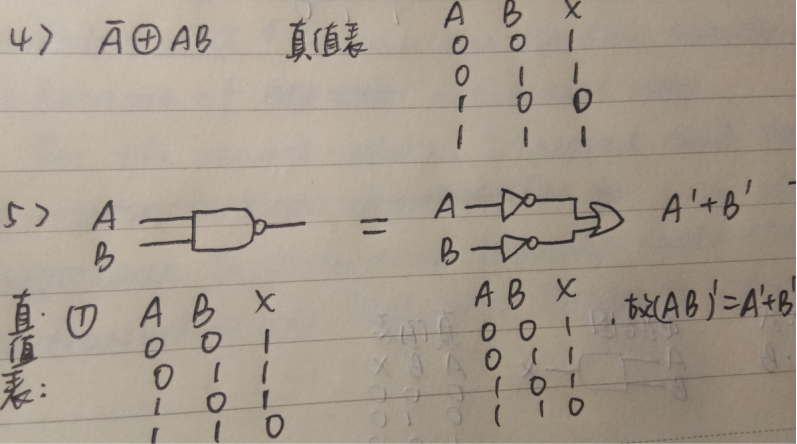 4> Ā⊕AB 真值表 A B X
0 0 1
0 1 1
1 0 0
1 1 1
5> A B = A B A'+B'
真值表: ① A B X
0 0 1
0 1 1
1 0 1
1 1 0
A B X
0 0 1
0 1 1
1 0 1
1 1 0
故(AB)'=A'+B'